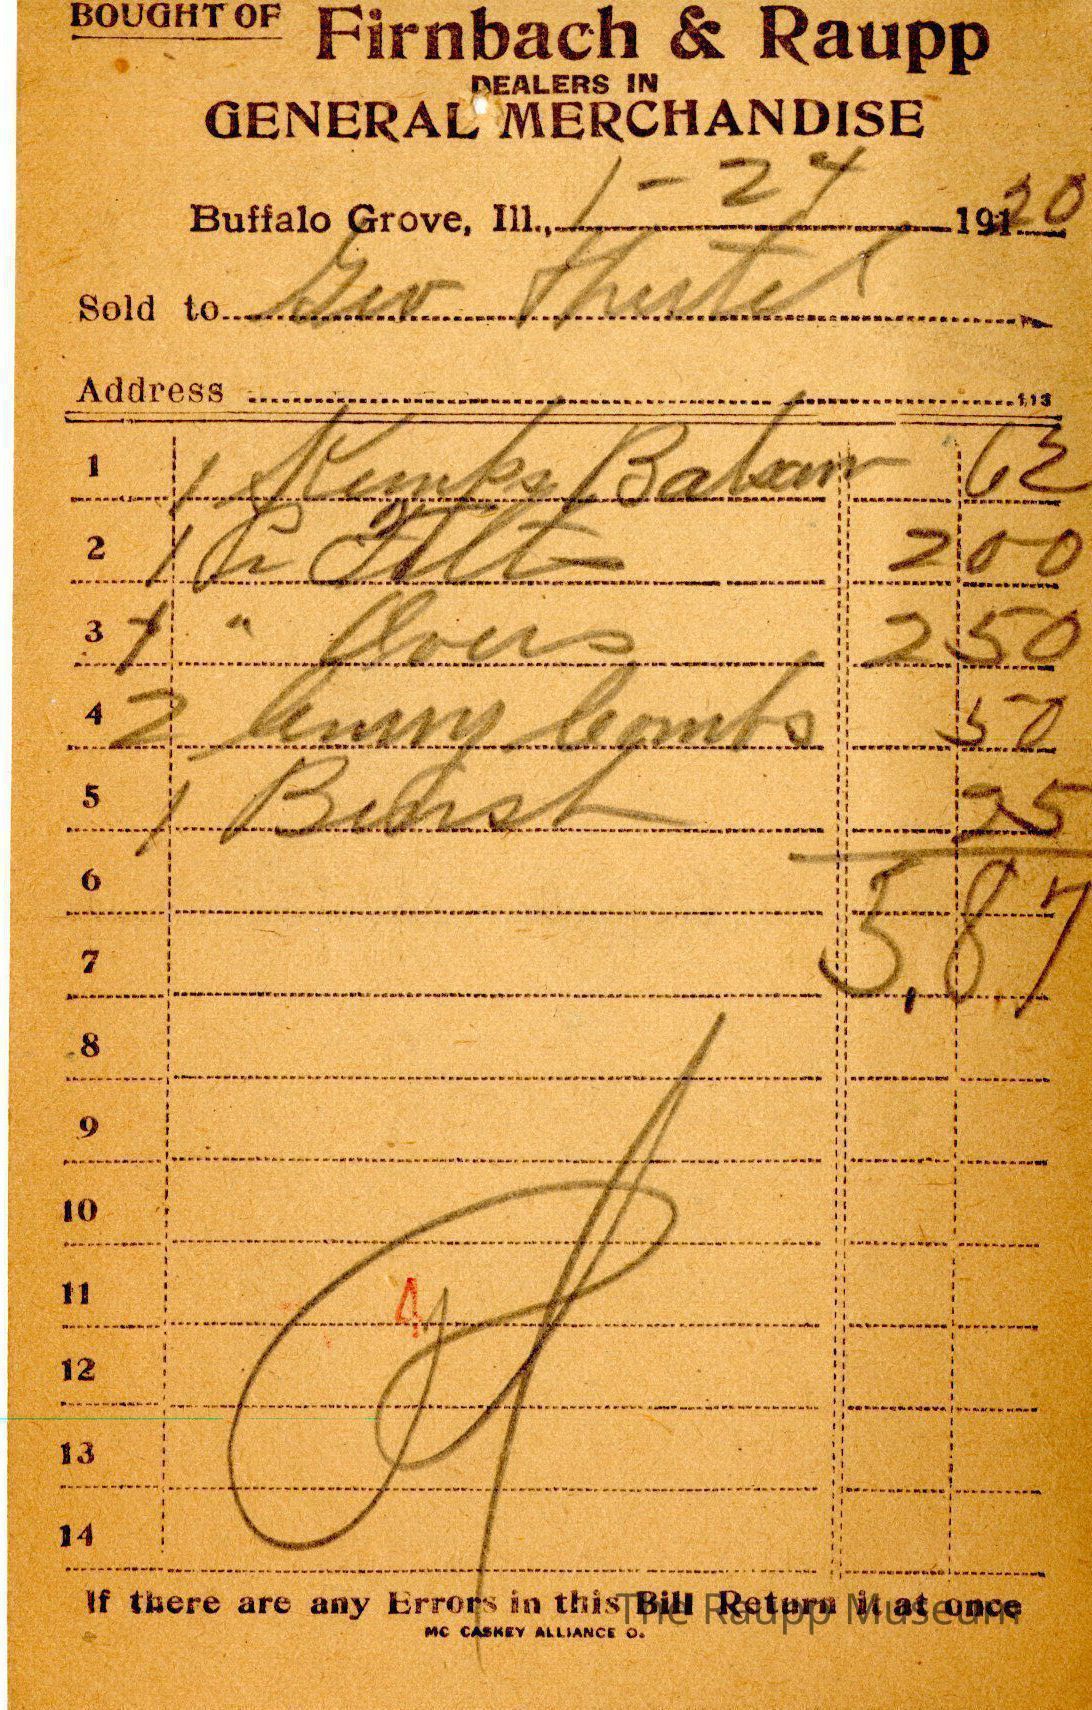 BOUGHT OF Firnbach & Raupp
DEALERS IN
GENERAL MERCHANDISE
Buffalo Grove, Ill., 1-24 1920
Sold to Geo
Address 113
1 1 Kemps Balsam 62
2 1 Pr Felt 200
3 1 " Overs 250
4 2 Curry Combs 50
5 1 25
6 5.87
7
8
9
10
11 4
12
13
14
If there are any Errors in this Bill Return it at once
The Raupp Museum
MC CASKEY ALLIANCE O.